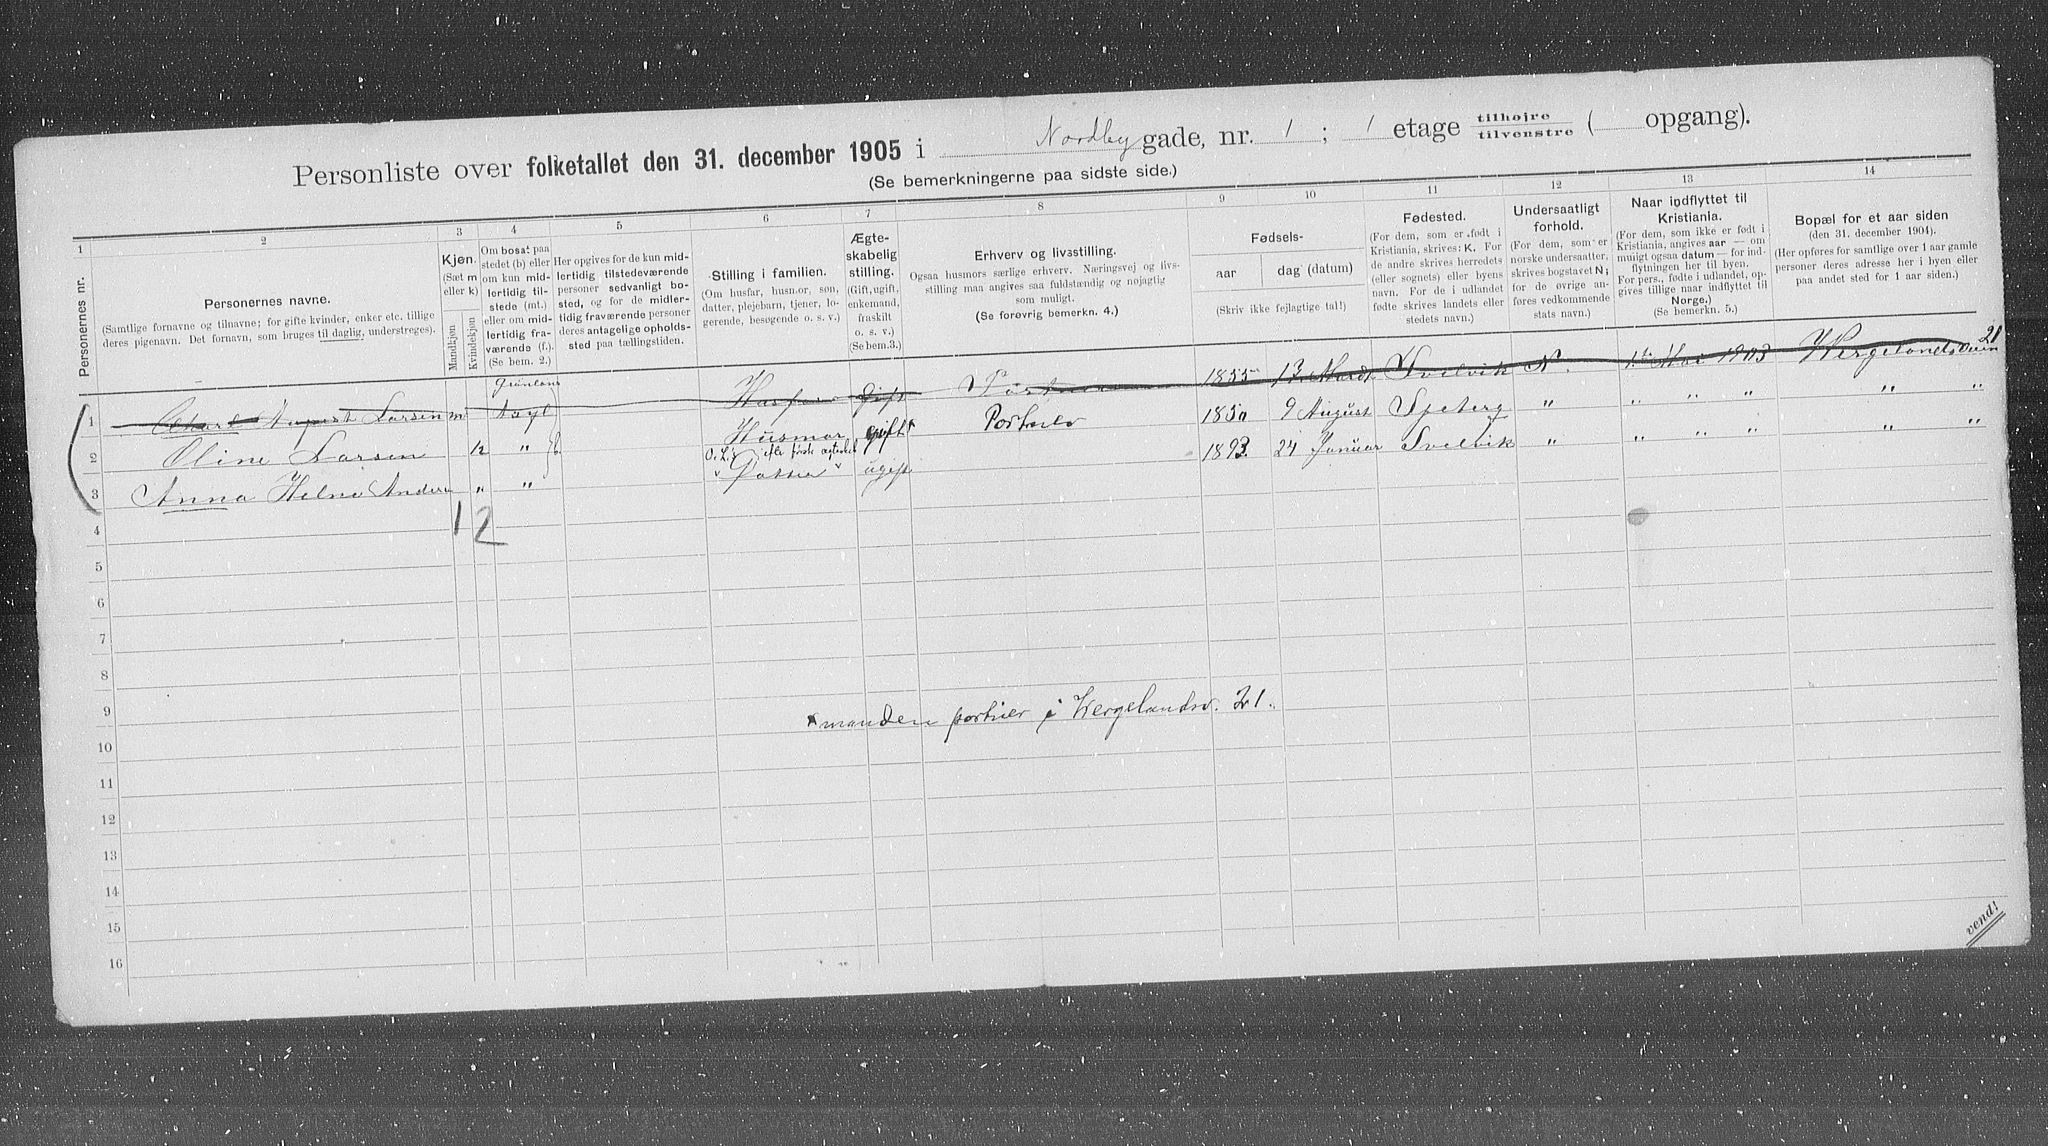 Personliste over folketallet den 31. december 1905 i Nordby gade, nr. 1 ; 1 etage tilhøjre tilvenstre ( opgang).
(Se bemerkningerne paa sidste side.)
1 2 3 4 5 6 7 8 9 10 11 12 13 14
Personernes nr.
Personernes navne.
(Samtlige fornavne og tilnavne; for gifte kvinder, enker etc. tillige
deres pigenavn. Det fornavn, som bruges til daglig, understreges).
Kjøn.
(Sæt m
eller k)
Mandkjøn
Kvindekjøn
Om bosat paa
stedet (b) eller
om kun mid-
lertidig til-
stede (mt.)
eller om mid-
lertidig fra-
værende (f.).
(Se bem. 2.)
Her opgives for de kun mid-
lertidig tilstedeværende
personer sedvanligt bo-
sted, og for de midler-
tidig fraværende personer
deres antagelige opholds-
sted paa tællingstiden.
Stilling i familien.
(Om husfar, husmor, søn,
datter, plejebarn, tjener, lo-
gerende, besøgende o. s. v.)
Ægte-
skabelig
stilling.
(Gift, ugift,
enkemand,
fraskilt
o. s. v.)
(Se bem.3.)
Erhverv og livsstilling.
Ogsaa husmors særlige erhverv. Næringsvej og livs-
stilling maa angives saa fuldstændig og nøjagtig
som muligt.
(Se forøvrig bemerkn. 4.)
Fødsels-
aar dag (datum)
(Skriv ikke fejlagtige tal!)
Fødested.
(For dem, som er født i
Kristiania, skrives: K. For
de andre skrives herredets
(eller sognets) eller byens
navn. For de i udlandet
fødte skrives landets eller
stedets navn.)
Undersaatligt
forhold.
(For dem, som er
norske undersaatter,
skrives bogstavet N;
for de øvrige an-
føres vedkommende
stats navn.)
Naar indflyttet til
Kristiania.
(For dem, som ikke er født i
Kristiania, angives aar — om
muligt ogsaa datum — for ind-
flytningen her til byen.
For pers., fødte i udlandet, op-
gives tillige naar indflyttet til
Norge.)
(Se bemerkn. 5.)
Bopæl for et aar siden
(den 31. december 1904).
(Her opføres for samtlige over 1 aar gamle
personer deres adresse her i byen eller
paa andet sted for 1 aar siden.)
1 August Larsen m Asyl Husfar Gift 1855 13 Svelvik N. 1 Mai 1903 Wergelandsveien 21
2 Oline Larsen " Husmor gift* 1850 9 August " " " " " "
3 Anna Andersen " " " Datter " ugift 1893. 24 Januar Svelvik " " " " " "
4 1 2
5
6
7
8
9 *manden portier i Vergelandsv. 21.
10
11
12
13
14
15
16
vend!